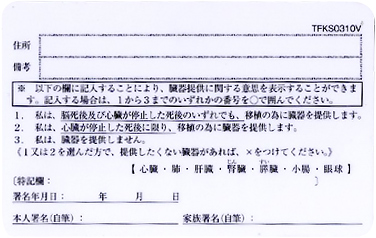 TFKS0310V
住所
備考
※ 以下の欄に記入することにより、臓器提供に関する意思を表示することができま
す。記入する場合は、1から3までのいずれかの番号を○で囲んでください。
1. 私は、脳死後及び心臓が停止した死後のいずれでも、移植の為に臓器を提供します。
2. 私は、心臓が停止した死後に限り、移植の為に臓器を提供します。
3. 私は、臓器を提供しません。
《1又は2を選んだ方で、提供したくない臓器があれば、×をつけてください。》
じん すい
【 心臓・肺・肝臓・腎臓・膵臓・小腸・眼球 】
〔特記欄: 〕
署名年月日: 年 月 日
本人署名(自筆): 家族署名(自筆):